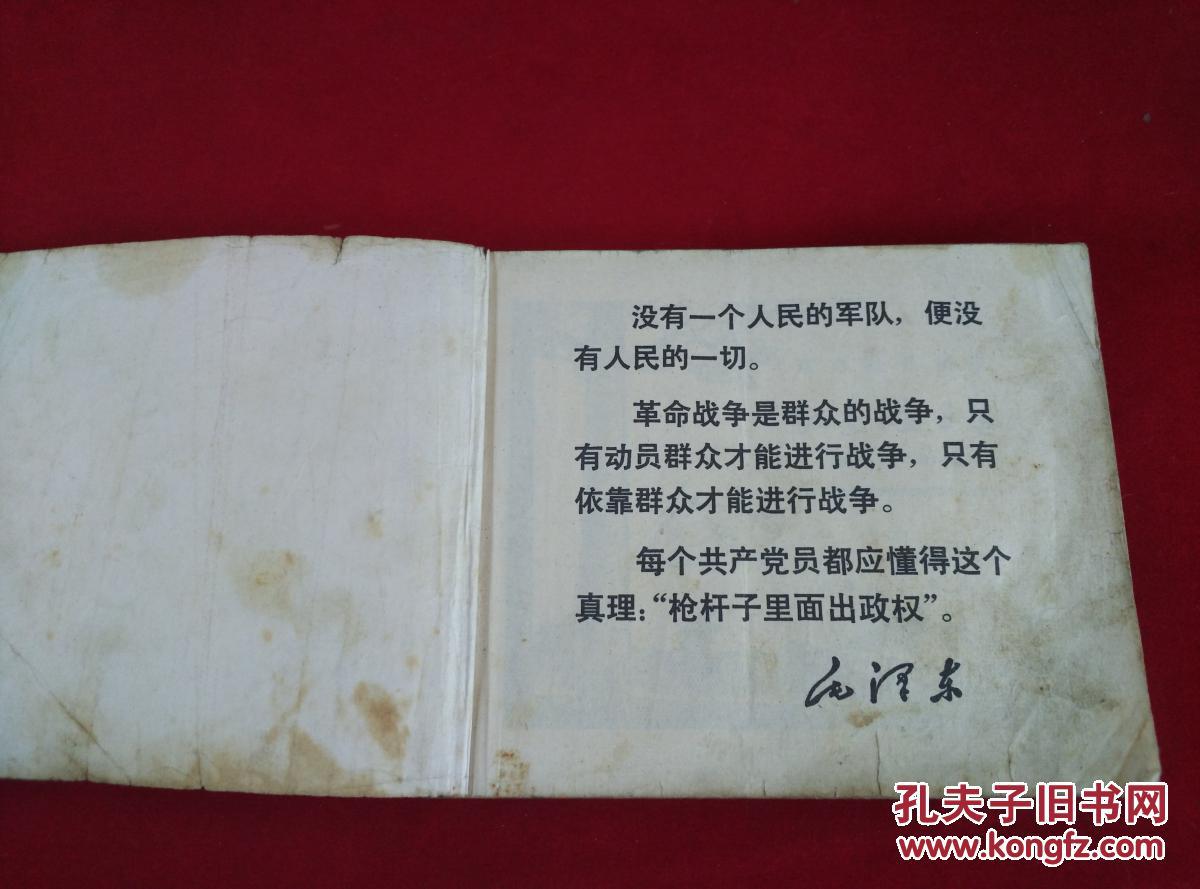 没有一个人民的军队，便没
有人民的一切。
革命战争是群众的战争，只
有动员群众才能进行战争，只有
依靠群众才能进行战争。
每个共产党员都应懂得这个
真理：“枪杆子里面出政权”。
毛泽东
孔夫子旧书网
www.kongfz.com